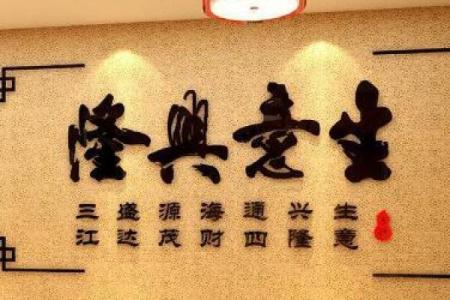 生意興隆
生意
兴隆
通四
海财
源茂
盛达
三江